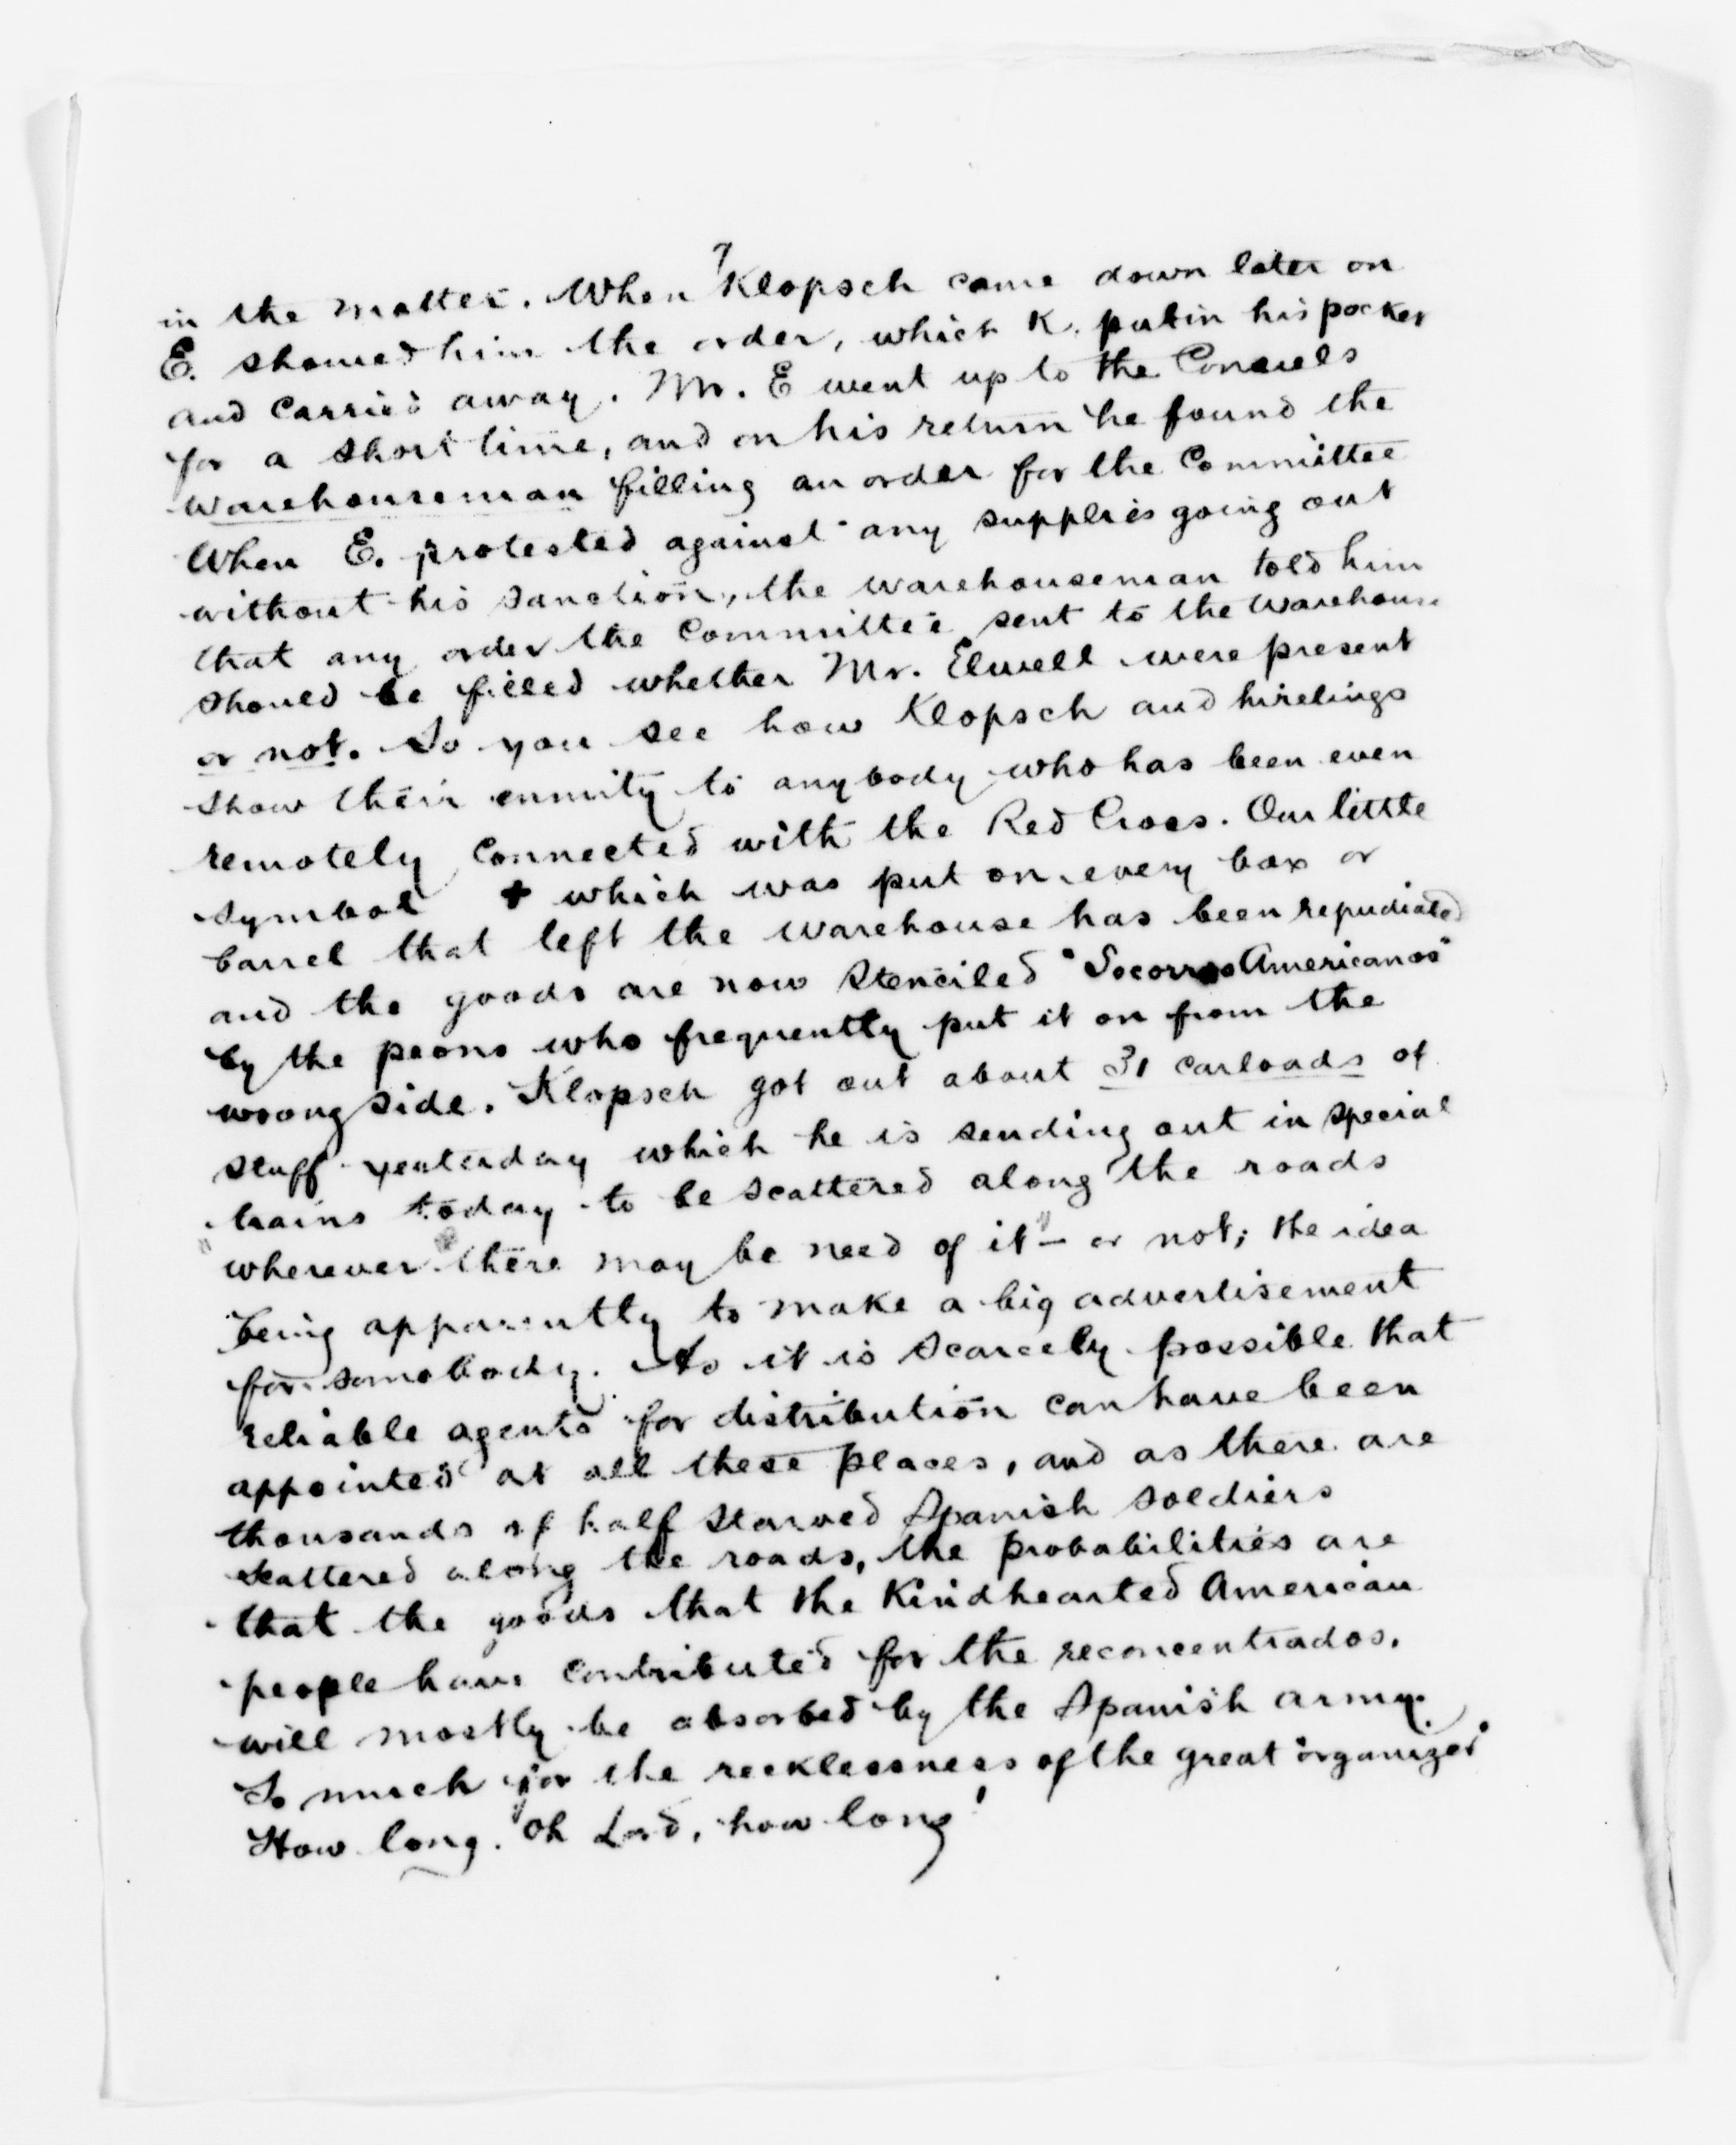 7
in the matter. When Klopsch came down later on
E. showed him the order, which K. put in his pocket
and carried away. Mr. E went up to the Consuls
for a short time, and on his return he found the
warehouseman filling an order for the Committee
When E. protested against any supplies going out
without his sanction, the warehouseman told him
that any order the Committee sent to the warehouse
should be filled whether Mr. Elwell were present
or not. So you see how Klopsch and hirelings
show their enmity to anybody who has been even
remotely connected with the Red Cross. Our little
symbol ✚ which was put on every box or
barrel that left the warehouse has been repudiated
and the goods are now stenciled "Socorros Americanos"
by the peons who frequently put it on from the
wrong side. Klopsch got out about 31 carloads of
stuff yesterday which he is sending out in special
trains today to be scattered along the roads
"wherever there may be need of it" - or not; the idea
being apparently to make a big advertisement
for somebody. As it is scarcely possible that
reliable agents for distribution can have been
appointed at all these places, and as there are
thousands of half starved Spanish soldiers
scattered along the roads, the probabilities are
that the goods that the Kindhearted American
people have contributed for the reconcentrados,
will mostly be absorbed by the Spanish army.
So much for the recklessness of the great "organizer"
How long. Oh Lord, how long!